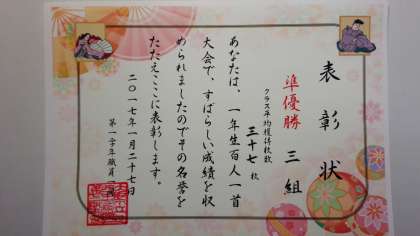 表彰状
準優勝 三組
クラス平均獲得枚数
三十七 枚
あなたは、一年生百人一首
大会で、すばらしい成績を収
められましたのでその名誉を
たたえここに表彰します。
二〇一七年一月二十七日
第一学年職員